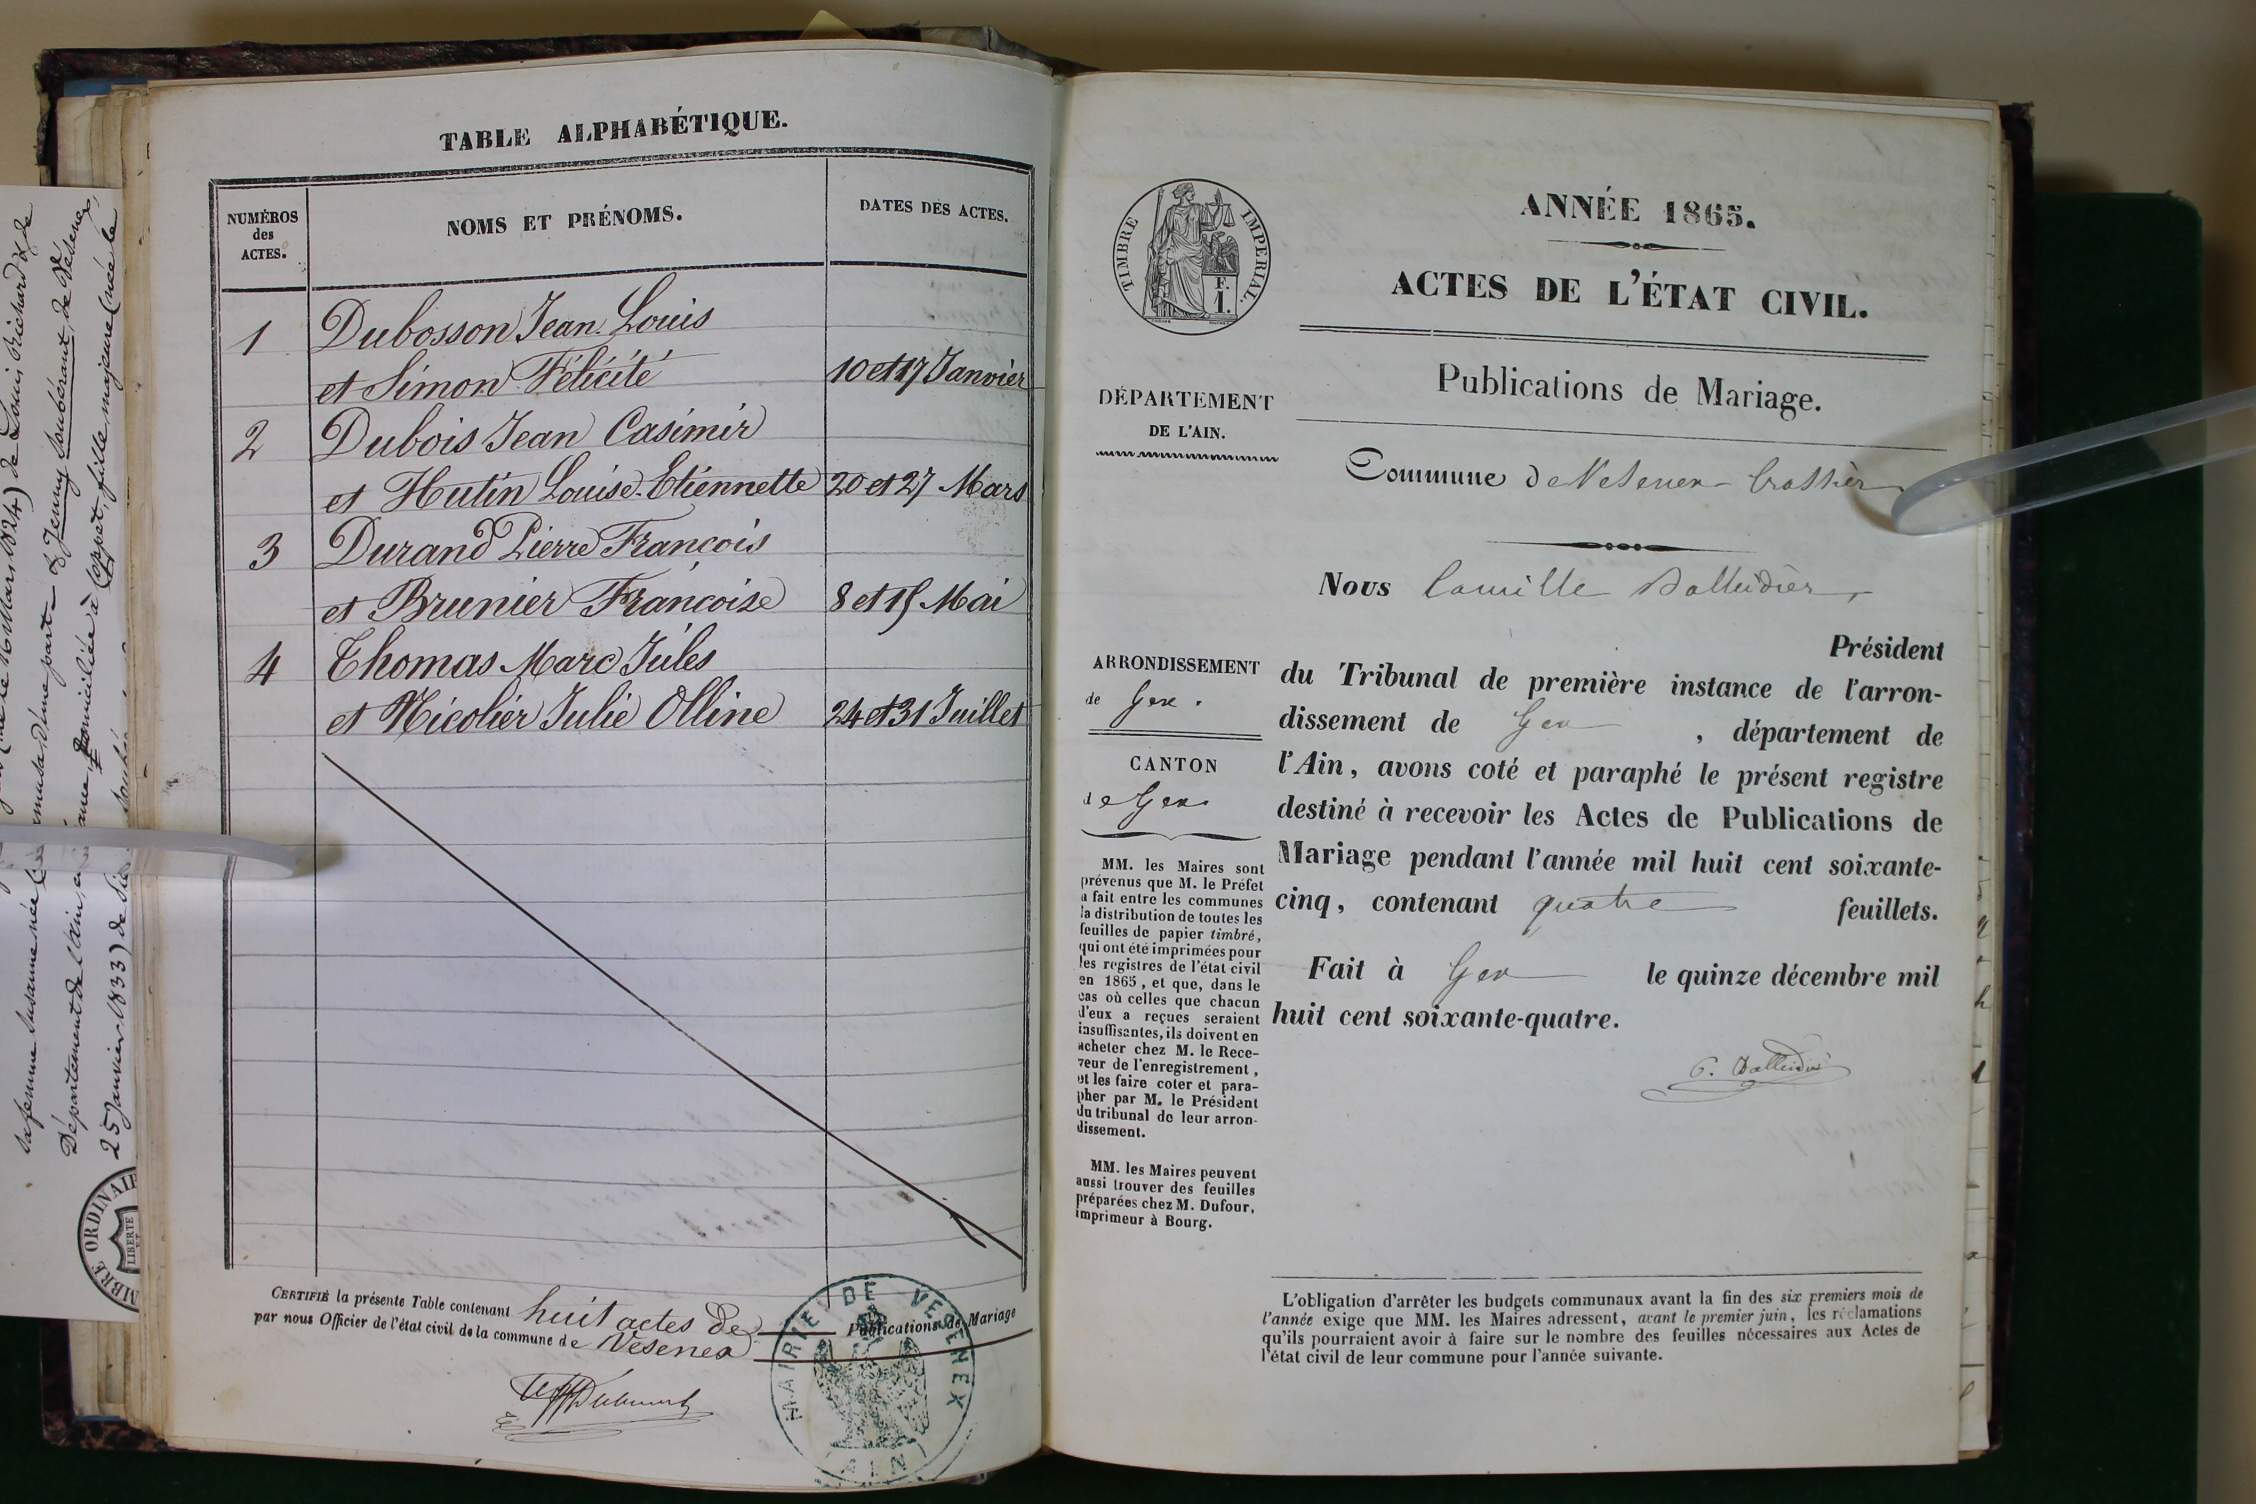 TABLE ALPHABÉTIQUE.
NUMÉROS
des
ACTES.
NOMS ET PRÉNOMS.
DATES DES ACTES.
1
Dubosson Jean Louis
et Simon Félicité
10 et 17 Janvier
2
Dubois Jean Casimir
et Hutin Louise Etiennette
20 et 27 Mars
3
Durand Pierre François
et Brunier Françoise
8 et 15 Mai
4
Thomas Marc Jules
et Nicolier Julie Olline
24 et 31 Juillet
CERTIFIÉ la présente Table contenant huit actes de Publications de Mariage
par nous Officier de l'état civil de la commune de Vésenex
MAIRIE DE VESENEX
(AIN)
de Louis Richard & de
sa femme Susanne née d'une part & Jenny Soubérant, de Vésenex,
Département de l'ain, domiciliée à Coppet, fille majeure (née le
25 Janvier 1833) de
ORDINAIRE
LIBERTÉ
TIMBRE IMPÉRIAL.
F.
1.
ANNÉE 1865.
ACTES DE L'ÉTAT CIVIL.
Publications de Mariage.
DÉPARTEMENT
DE L'AIN.
Commune de Vesenex-Crassier
Nous Camille Balleidier,
Président
ARRONDISSEMENT
de Gex.
CANTON
de Gex
du Tribunal de première instance de l'arron-
dissement de Gex, département de
l'Ain, avons coté et paraphé le présent registre
destiné à recevoir les Actes de Publications de
Mariage pendant l'année mil huit cent soixante-
cinq, contenant quatre feuillets.
Fait à Gex le quinze décembre mil
huit cent soixante-quatre.
C. Balleidier
MM. les Maires sont
prévenus que M. le Préfet
a fait entre les communes
la distribution de toutes les
feuilles de papier timbré,
qui ont été imprimées pour
les registres de l'état civil
en 1865, et que, dans le
cas où celles que chacun
d'eux a reçues seraient
insuffisantes, ils doivent en
acheter chez M. le Rece-
veur de l'enregistrement,
et les faire coter et para-
pher par M. le Président
du tribunal de leur arron-
dissement.
MM. les Maires peuvent
aussi trouver des feuilles
préparées chez M. Dufour,
imprimeur à Bourg.
L'obligation d'arrêter les budgets communaux avant la fin des six premiers mois de
l'année exige que MM. les Maires adressent, avant le premier juin, les réclamations
qu'ils pourraient avoir à faire sur le nombre des feuilles nécessaires aux Actes de
l'état civil de leur commune pour l'année suivante.